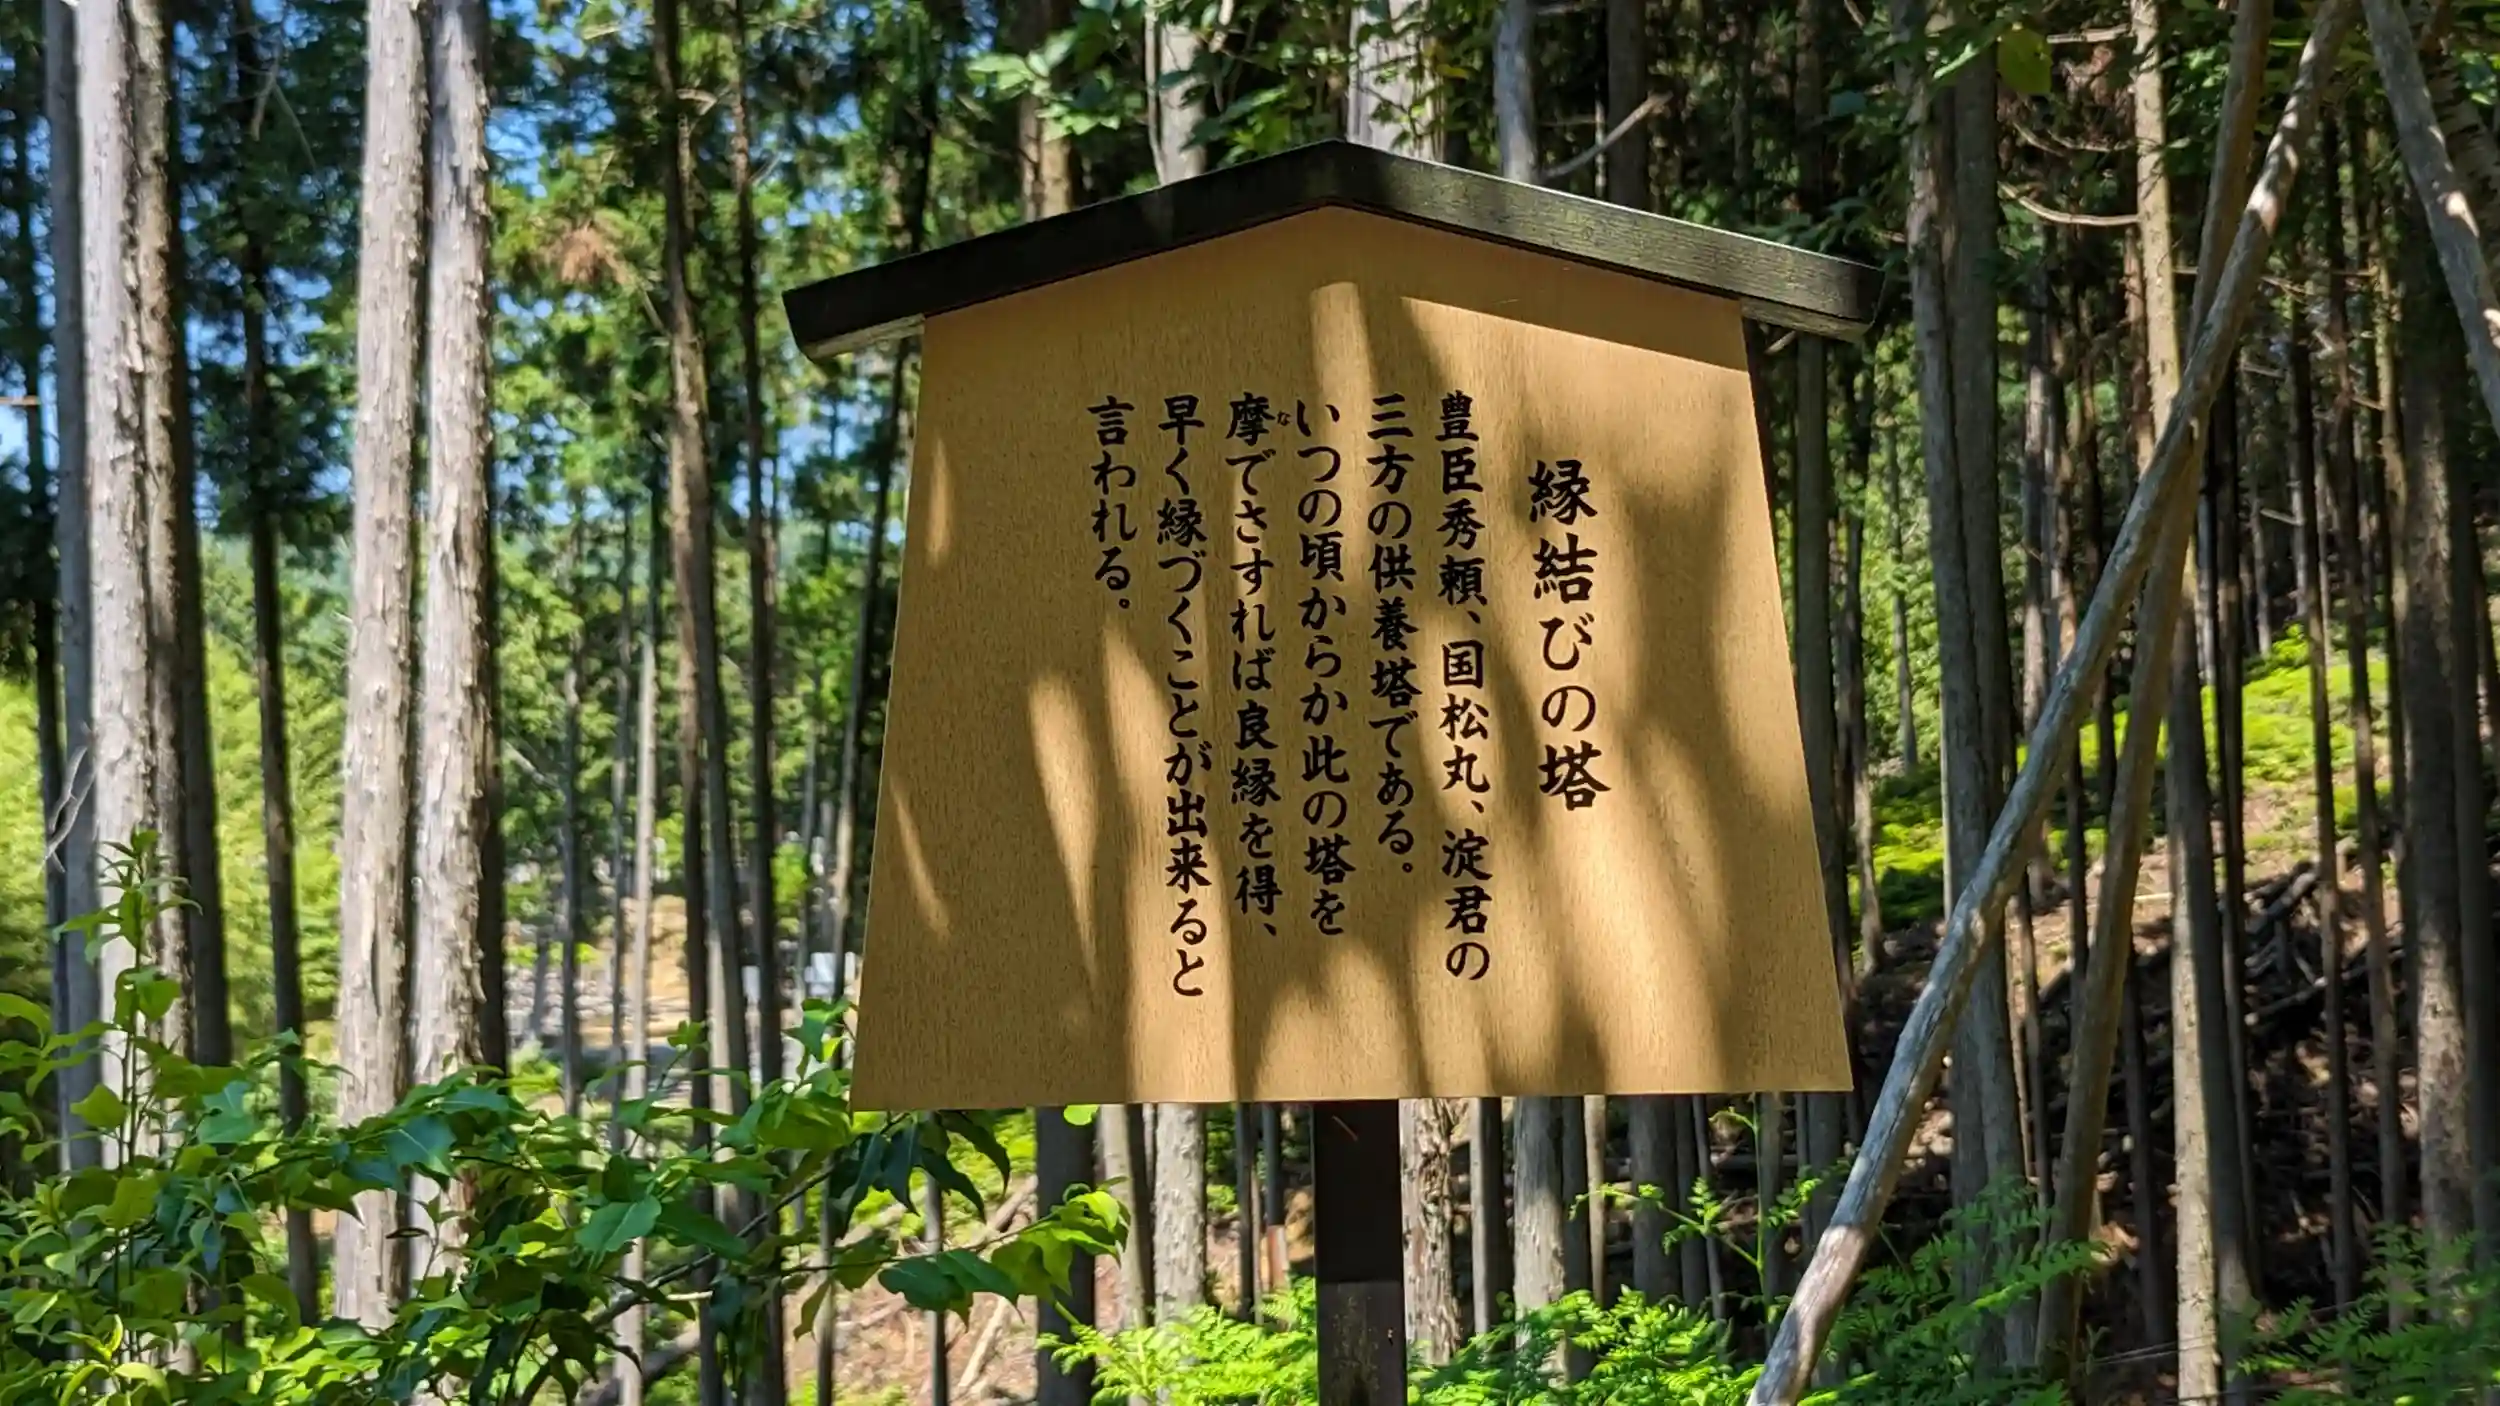 縁結びの塔
豊臣秀頼、国松丸、淀君の
三方の供養塔である。
いつの頃からか此の塔を
摩でさすれば良縁を得、
な
早く縁づくことが出来ると
言われる。